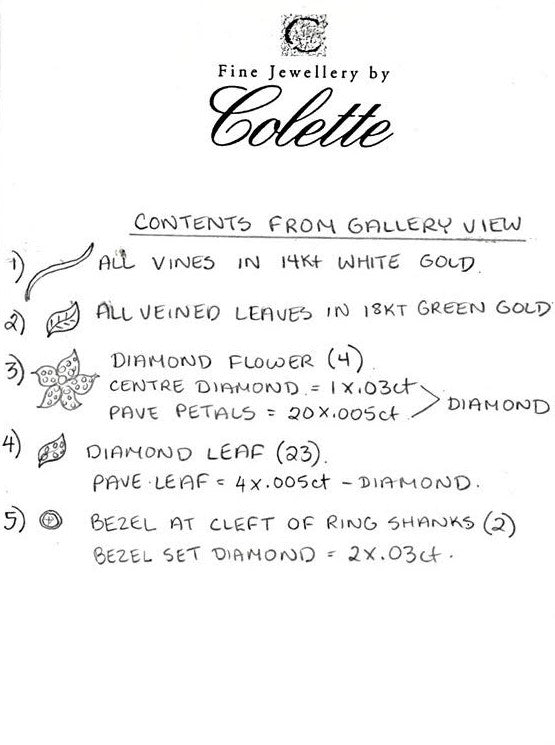 C
Fine Jewellery by
Colette
CONTENTS FROM GALLERY VIEW
1) ALL VINES IN 14Kt WHITE GOLD.
2) ALL VEINED LEAVES IN 18KT GREEN GOLD
3) DIAMOND FLOWER (4)
CENTRE DIAMOND = 1X.03ct
PAVE PETALS = 20X.005ct. > DIAMOND
4) DIAMOND LEAF (23).
PAVE·LEAF = 4X.005ct - DIAMOND.
5) BEZEL AT CLEFT OF RING SHANKS (2)
BEZEL SET DIAMOND = 2X.03ct.